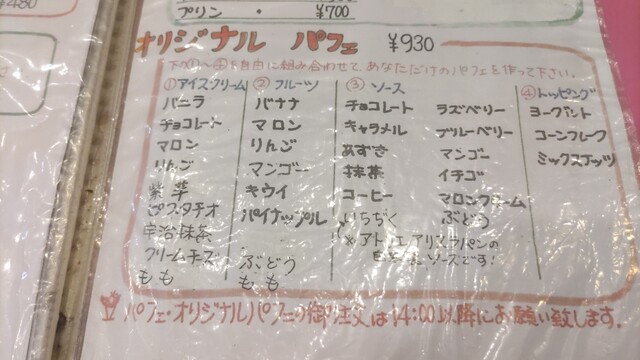 ¥480
プリン ・ ¥700
オリジナル パフェ ¥930
下の①〜④を自由に組み合わせて、あなただけのパフェを作って下さい。
①アイスクリーム ② フルーツ ③ ソース ④ トッピング
バニラ バナナ チョコレート ラズベリー ヨーグルト
チョコレート マロン キャラメル ブルーベリー コーンフレーク
マロン りんご あずき マンゴー ミックスナッツ
りんご マンゴー 抹茶 イチゴ
紫芋 キウイ コーヒー マロンクリーム
ピスタチオ パイナップル いちぢく ぶどう
宇治抹茶 ※アトリエアリスラパンの
クリームチーズ ぶどう ソースです!
もも もも
パフェ・オリジナルパフェの御注文は14:00以降にお願い致します。